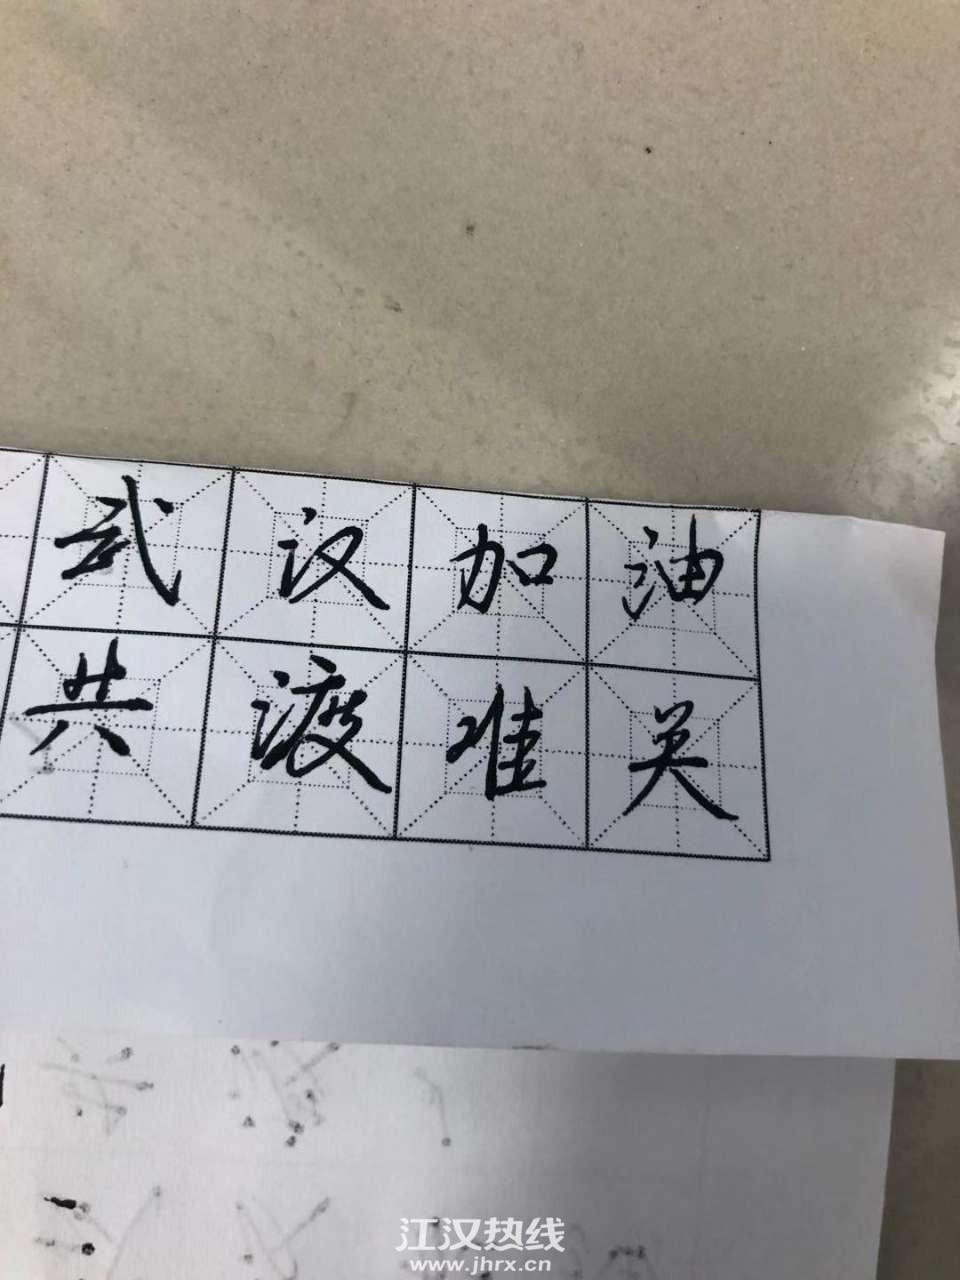 武汉加油
共渡难关
江汉热线
www.jhrx.cn